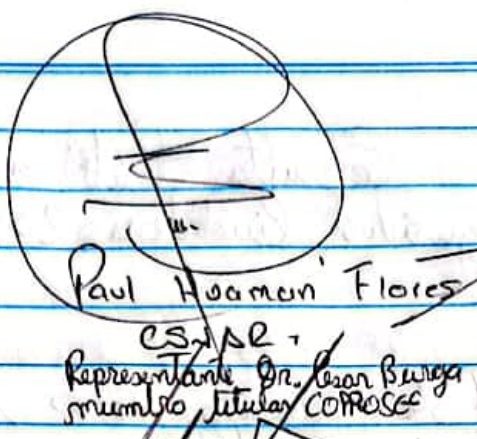 Paul Huaman Flores
Representante Dr. Cesar Burga
miembro titular COPROSEC